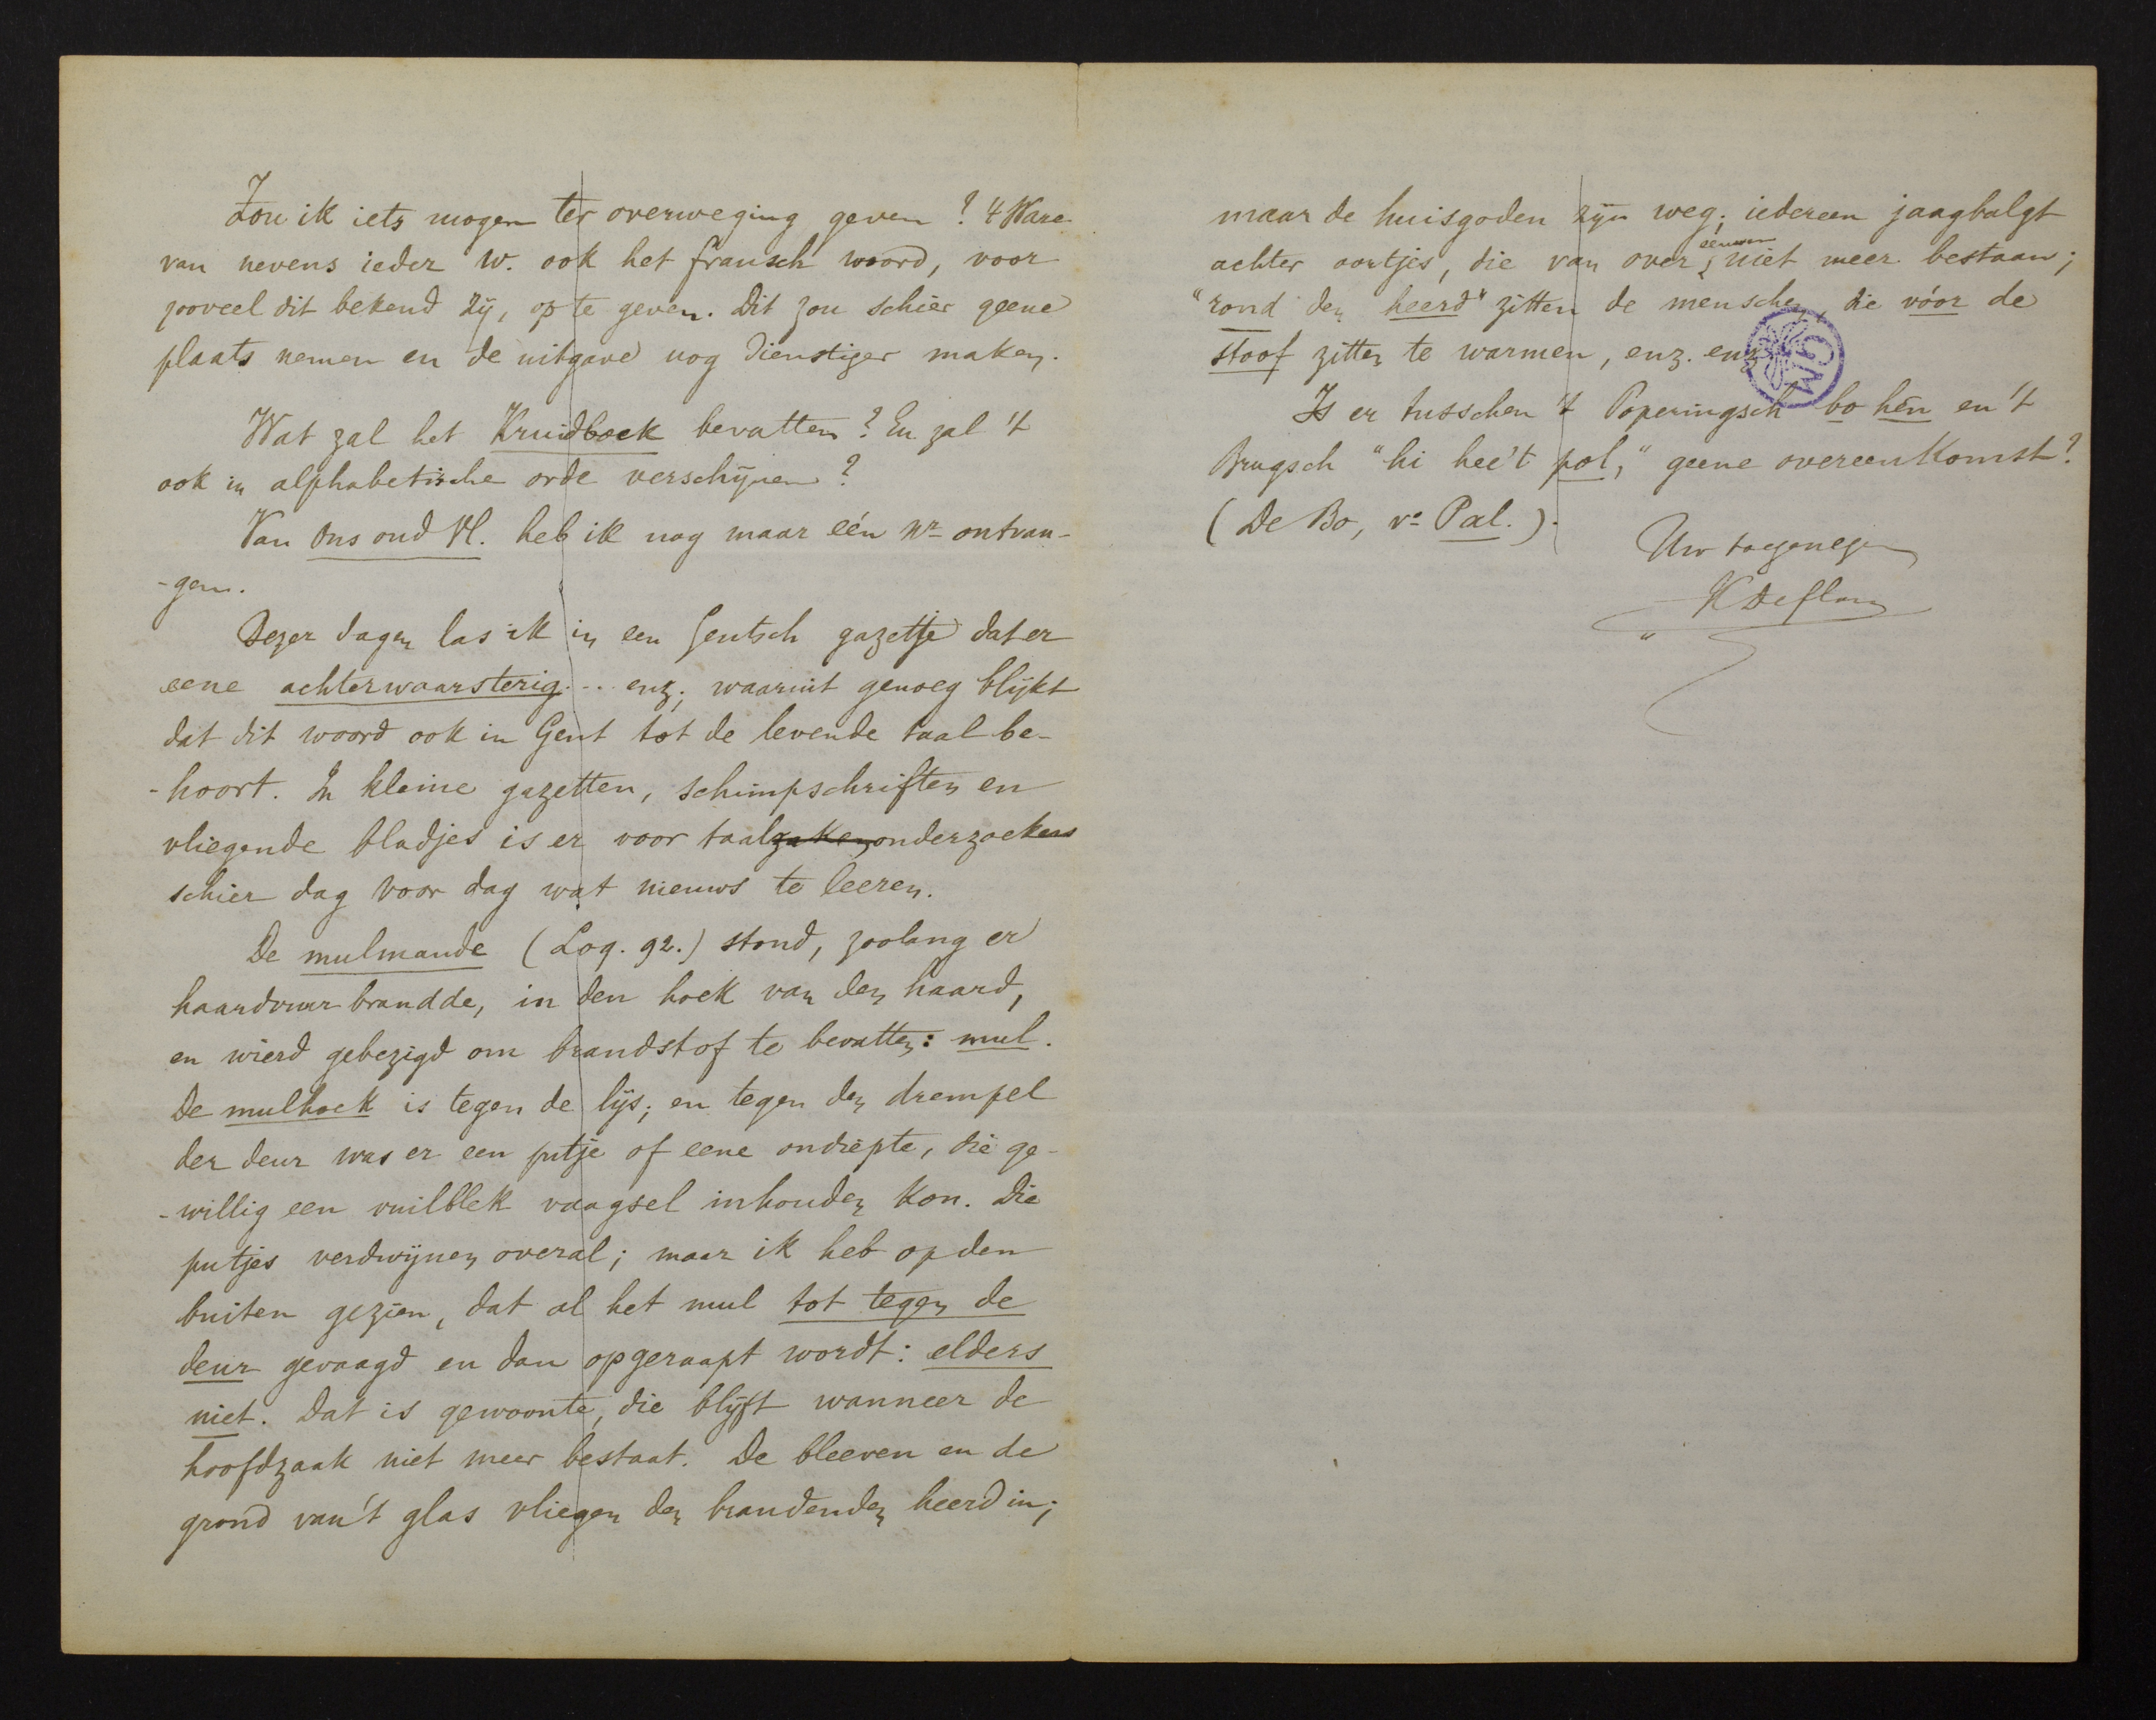 Zou ik iets mogen ter overweging geven? 't Ware
van nevens ieder W. ook het fransch woord, voor
zooveel dit bekend zij, op te geven. Dit zou schier geene
plaats nemen en de uitgave nog dienstiger maken.
Wat zal het Kruidboek bevatten? En zal 't
ook in alphabetische orde verschijnen?
Van Ons oud Vl. heb ik nog maar eén Nr ontvan-
-gen.
Dezer dagen las ik in een Gentsch gazetje dat er
eene achterwaarsterig... enz; waaruit genoeg blijkt
dat dit woord ook in Gent tot de levende taal be-
-hoort. In kleine gazetten, schimpschriften en
vliegende bladjes is er voor taalzaken onderzoekers
schier dag voor dag wat nieuws te leeren.
De mulmande (Loq. 92.) stond, zoolang er
haardvuur brandde, in den hoek van den haard,
en wierd gebezigd om brandstof te bevatten: mul.
De mulhoek is tegen de lijs; en tegen den drempel
der deur was er een putje of eene ondiepte, die ge-
-willig een vuilblek vaagsel inhouden kon. Die
putjes verdwijnen overal; maar ik heb op den
buiten gezien, dat al het mul tot tegen de
deur gevaagd en dan opgeraapt wordt: elders
niet. Dat is gewoonte, die blijft wanneer de
hoofdzaak niet meer bestaat. De bleeven en de
grond van 't glas vliegen den brandenden heerd in;
maar de huisgoden zijn weg; iedereen jaagbalgt
achter oortjes, die van over eeuwen niet meer bestaan;
"rond den heerd" zitten de menschen, die vóor de
stoof zitten te warmen, enz. enz.
GM
Is er tusschen 't Poperingsch bo hên en 't
Brugsch "hi hee't pol," geene overeenkomst?
(De Bo, vo Pal.).
Uw toegenegen
K Deflou